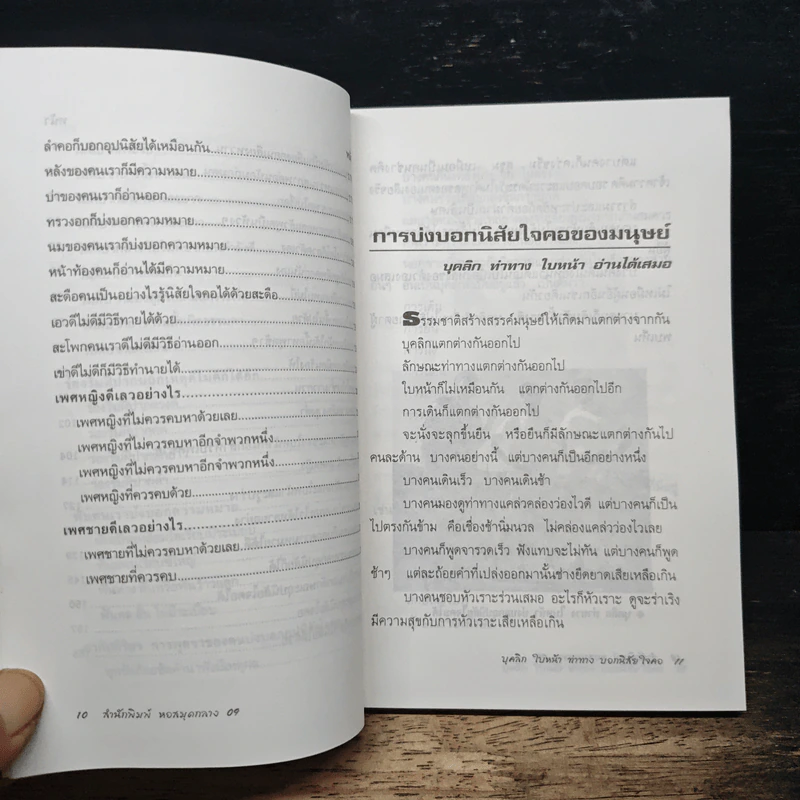 ลำคอก็บอกอุปนิสัยได้เหมือนกัน
หลังของคนเราก็มีความหมาย
บ่าของคนเราก็อ่านออก
ทรวงอกก็บ่งบอกความหมาย
นมของคนเราก็บ่งบอกความหมาย
หน้าท้องคนก็อ่านได้มีความหมาย
สะดือคนเป็นอย่างไรรู้นิสัยใจคอได้ด้วยสะดือ
เอวดีไม่ดีมีวิธีทายได้ด้วย
สะโพกคนเราดีไม่ดีมีวิธีอ่านออก
เข่าดีไม่ดีก็มีวิธีทำนายได้
เพศหญิงดีเลวอย่างไร
เพศหญิงที่ไม่ควรคบหาด้วยเลย
เพศหญิงที่ไม่ควรคบหาอีกจำพวกหนึ่ง
เพศหญิงที่ไม่ควรคบหาอีกจำพวกหนึ่ง
เพศหญิงที่ควรคบด้วย
เพศชายดีเลวอย่างไร
เพศชายที่ไม่ควรคบหาด้วยเลย
เพศชายที่ควรคบ
10 สำนักพิมพ์ หอสมุดกลาง 09
การบ่งบอกนิสัยใจคอของมนุษย์
บุคลิก ท่าทาง ใบหน้า อ่านได้เสมอ
ธรรมชาติสร้างสรรค์มนุษย์ให้เกิดมาแตกต่างจากกัน
บุคลิกแตกต่างกันออกไป
ลักษณะท่าทางแตกต่างกันออกไป
ใบหน้าก็ไม่เหมือนกัน แตกต่างกันออกไปอีก
การเดินก็แตกต่างกันออกไป
จะนั่งจะลุกขึ้นยืน หรือยืนก็มีลักษณะแตกต่างกันไป
คนละด้าน บางคนอย่างนี้ แต่บางคนก็เป็นอีกอย่างหนึ่ง
บางคนเดินเร็ว บางคนเดินช้า
บางคนมองดูท่าทางแคล่วคล่องว่องไวดี แต่บางคนก็เป็น
ไปตรงกันข้าม คือเชื่องช้านิ่มนวล ไม่คล่องแคล่วว่องไวเลย
บางคนก็พูดจารวดเร็ว ฟังแทบจะไม่ทัน แต่บางคนก็พูด
ช้าๆ แต่ละถ้อยคำที่เปล่งออกมานั้นช่างยืดยาดเสียเหลือเกิน
บางคนชอบหัวเราะร่วนเสมอ อะไรก็หัวเราะ ดูจะร่าเริง
มีความสุขกับการหัวเราะเสียเหลือเกิน
บุคลิก ใบหน้า ท่าทาง บอกนิสัยใจคอ 11